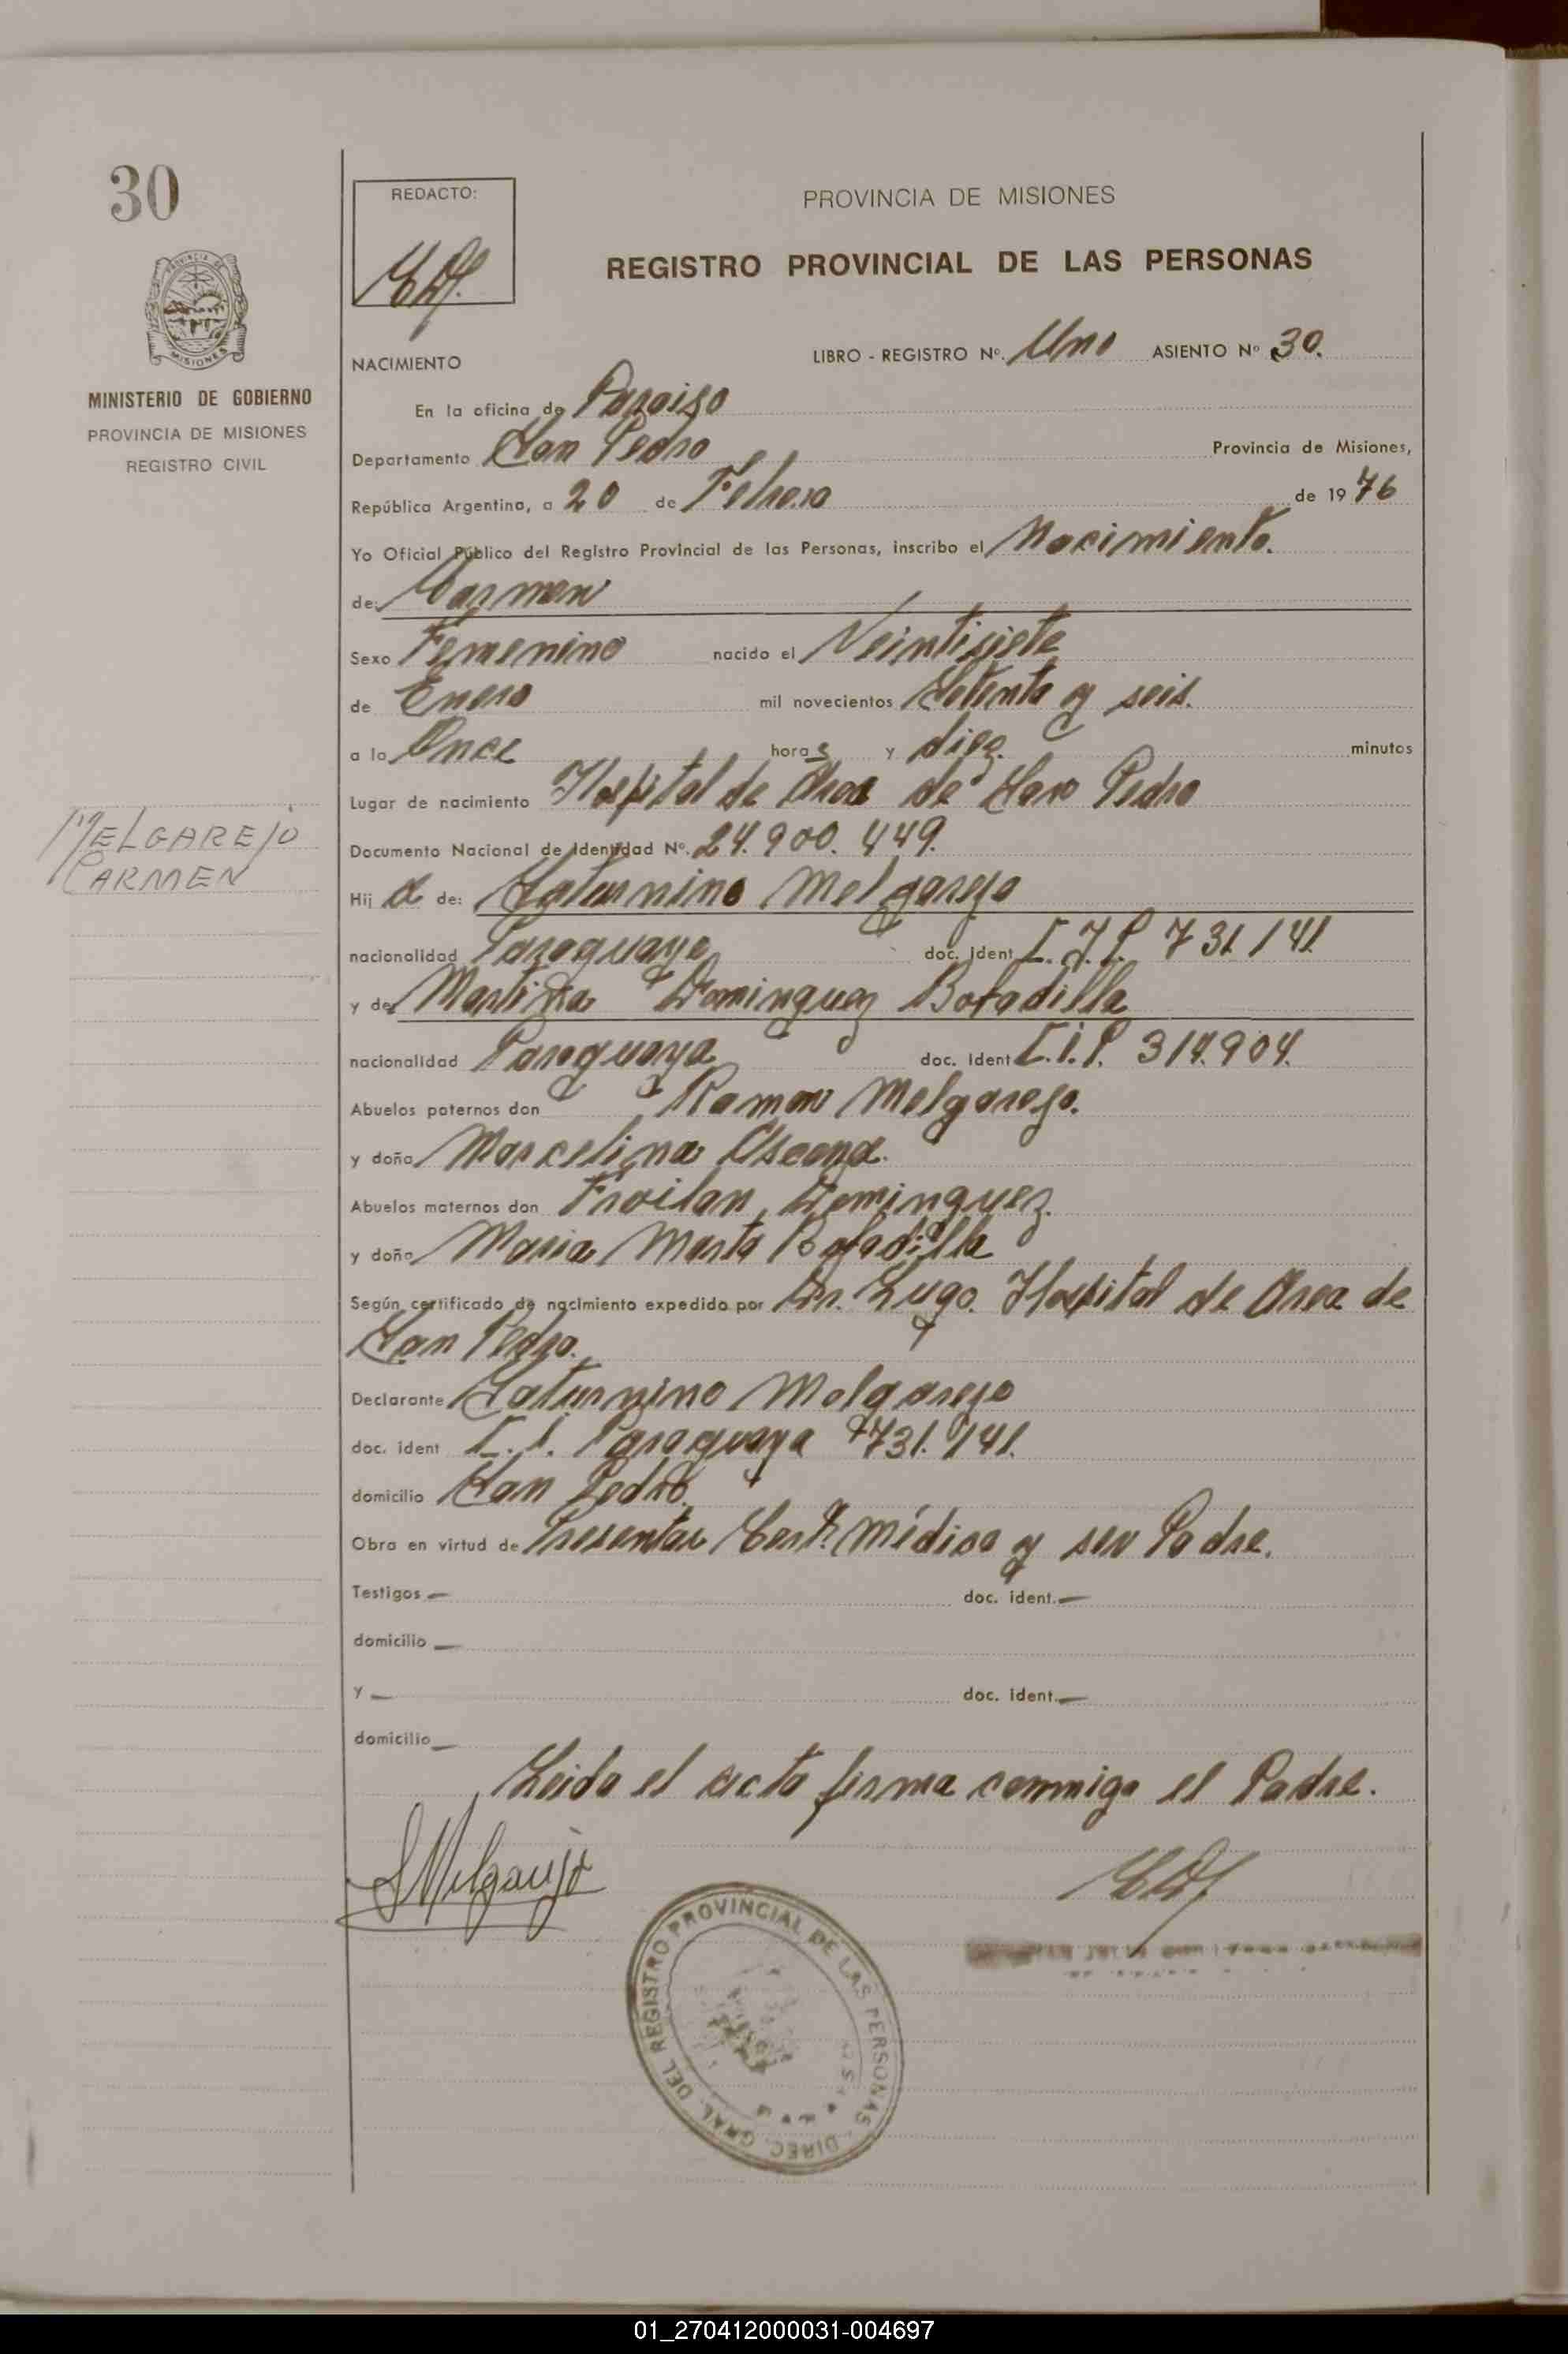 30
REDACTO:
PROVINCIA DE MISIONES
REGISTRO PROVINCIAL DE LAS PERSONAS
PROVINCIA DE
MISIONES
MINISTERIO DE GOBIERNO
PROVINCIA DE MISIONES
REGISTRO CIVIL
NACIMIENTO LIBRO - REGISTRO Nº. Uno ASIENTO Nº 30.
En la oficina de Paraiso
Departamento San Pedro Provincia de Misiones,
República Argentina, a 20 de Febrero de 1976
Yo Oficial Público del Registro Provincial de las Personas, inscribo el Nacimiento.
de: Carmen
Sexo Femenino nacido el Veintisiete
de Enero mil novecientos Setenta y seis.
a la Once horas y diez. minutos
Lugar de nacimiento Hospital de Area de San Pedro
MELGAREJO
CARMEN
Documento Nacional de Identidad Nº. 24.900.449.
Hij a de: Saturnino Melgarejo
nacionalidad Paraguaya doc. ident 731.141
y de Martina Dominguez Bofadilla
nacionalidad Paraguaya doc. ident C.I.P. 314.904.
Abuelos paternos don Ramon Melgarejo.
y doña Marcelina
Abuelos maternos don Froilan Dominguez.
y doña Maria Marta Bofadilla
Según certificado de nacimiento expedido por Dr. Lugo. Hospital de Area de
San Pedro.
Declarante Saturnino Melgarejo
doc. ident C.I. Paraguaya 731.141.
domicilio San Pedro.
Obra en virtud de Presentar Cert. médico y ser Padre.
Testigos — doc. ident. —
domicilio —
y — doc. ident. —
domicilio —
Leida el acta firma conmigo el Padre.
SMelgarejo
DIREC. GRAL. DEL REGISTRO PROVINCIAL DE LAS PERSONAS
01_270412000031-004697